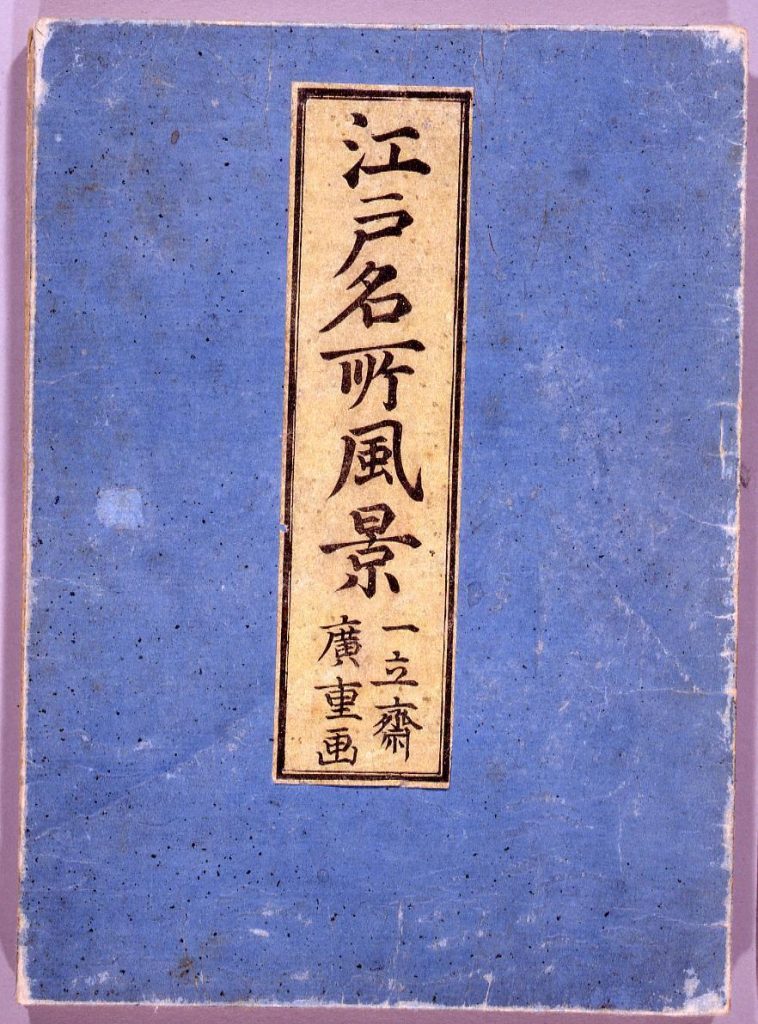 江戸名所風景
一立齋
廣重画